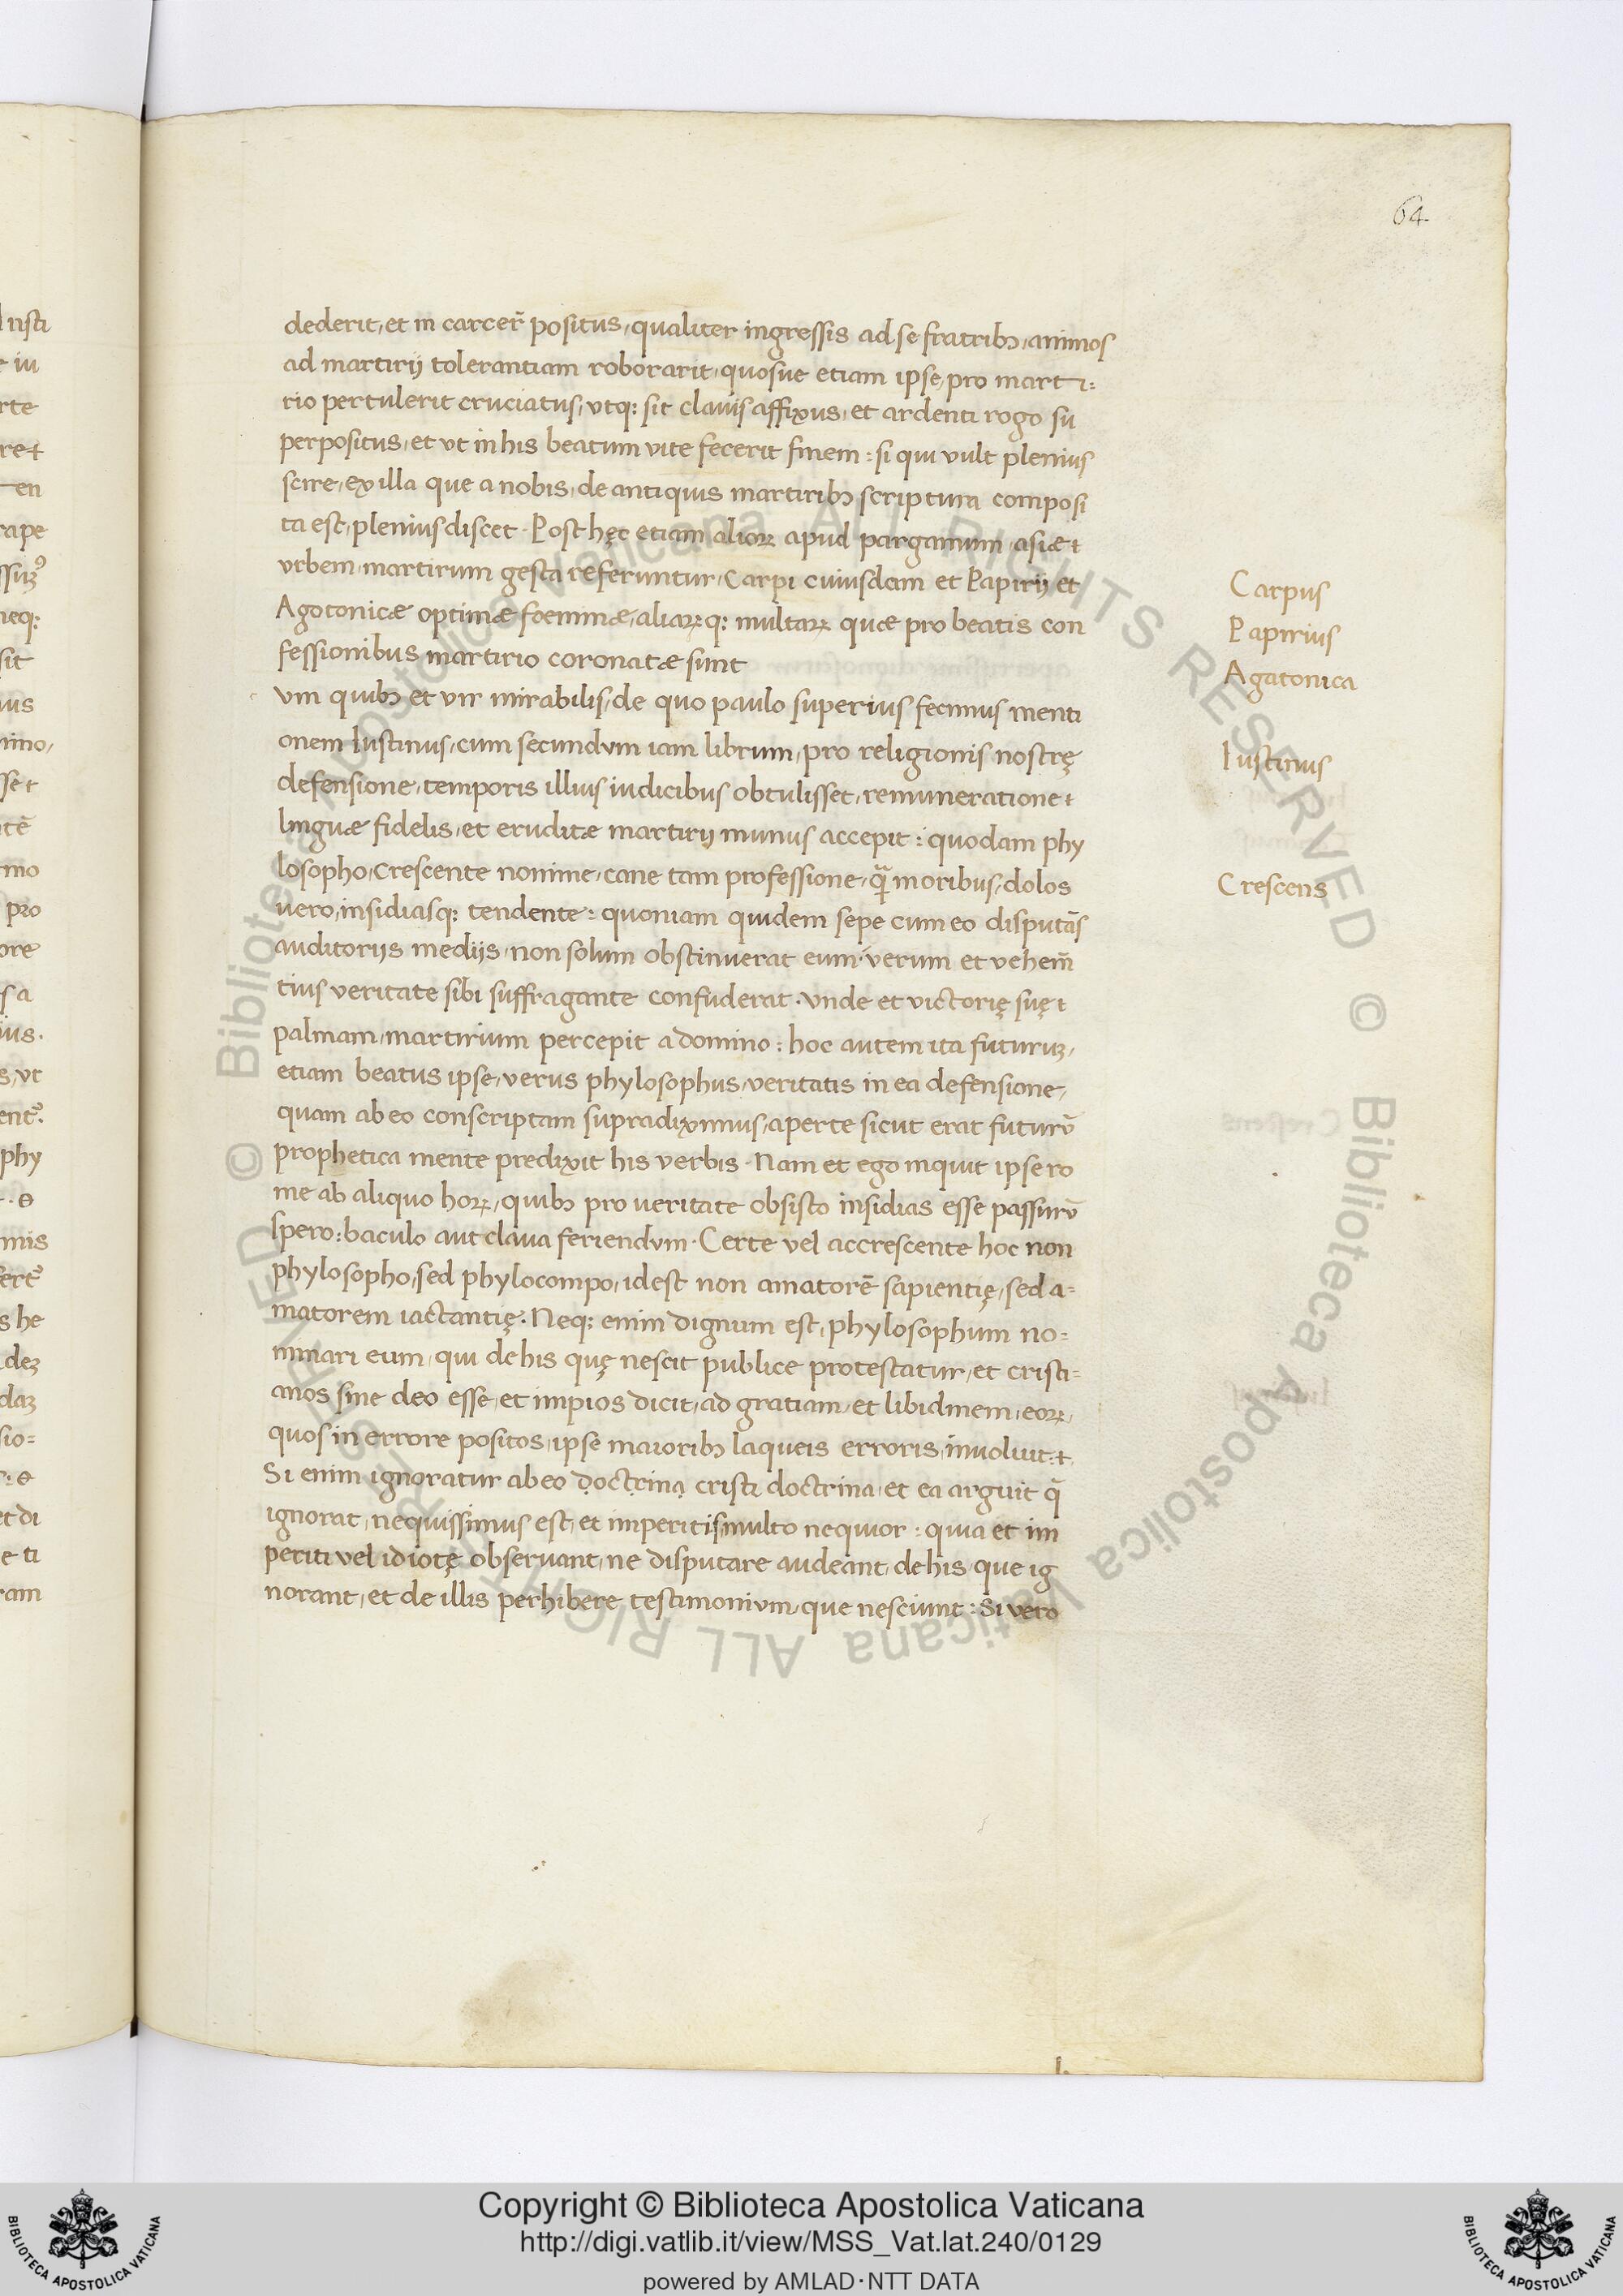 64
dederit, et in carcer̃ positus, qualiter ingressis ad se fratribꝫ, animos
ad martirij tolerantiam roborarit, quosue etiam ipse, pro marti:
rio pertulerit cruciatus, vtq: sit clauis affixus, et ardenti rogo su
perpositus, et vt in his beatum vite fecerit finem: si qui vult plenius
scire, ex illa que a nobis, de antiquis martiribꝫ scriptura composi
ta est, plenius discet. Post hęc etiam alioꝝ apud pargamum, asiæ
vrbem, martirum gesta referuntur, Carpi cuiusdam et Papirij et
Agotonicæ optimæ foeminæ, aliaꝝq: multaꝝ quæ pro beatis con
fessionibus martirio coronatæ sunt
c vm quibꝫ et vir mirabilis, de quo paulo superius fecimus menti
onem Iustinus, cum secundvm iam librum, pro religionis nostrę
defensione, temporis illius iudicibus obtulisset, remuneratione
linguæ fidelis, et eruditæ martirij munus accepit: quodam phy
losopho, Crescente nomine, cane tam professione, q̃ moribus, dolos
uero, insidiasq: tendente: quoniam quidem sepe cum eo disputãs
auditorijs medijs, non solum obstinuerat eum, verum et vehem̃
tius veritate sibi suffragante confuderat. vnde et victorię suę
palmam, martirium percepit a domino: hoc autem ita futuruꝫ,
etiam beatus ipse, verus phylosophus, veritatis in ea defensione,
quam ab eo conscriptam supradiximus, aperte sicut erat futurũ
prophetica mente predixit his verbis. Nam et ego inquit ipse ro
me ab aliquo hoꝝ, quibꝫ pro ueritate obsisto insidias esse passurũ
spero: baculo aut claua feriendvm. Certe vel accrescente hoc non
phylosopho, sed phylocompo, idest non amatorẽ sapientię, sed a=
matorem iactantię. Neq: enim dignum est, phylosophum no=
minari eum, qui de his quę nescit publice protestatur, et cristi=
anos sine deo esse, et impios dicit, ad gratiam, et libidinem, eoꝝ,
quos in errore positos, ipse maioribꝫ laqueis erroris, inuoluit.
Si enim ignoratur ab eo doctrina cristi doctrina, et ea arguit q̃
ignorat, nequissimus est, et imperitis multo nequior: quia et im
periti vel idiotę obseruant, ne disputare audeant, de his, que ig
norant, et de illis perhibere testimonivm, que nesciunt: Si vero
Carpus
Papirius
Agatonica
Iustinus
Crescens
Copyright © Biblioteca Apostolica Vaticana
http://digi.vatlib.it/view/MSS_Vat.lat.240/0129
powered by AMLAD·NTT DATA
BIBLIOTECA APOSTOLICA VATICANA
BIBLIOTECA APOSTOLICA VATICANA
© Biblioteca Apostolica Vaticana ALL RIGHTS RESERVED © Biblioteca Apostolica Vaticana ALL RIGHTS RESERVED